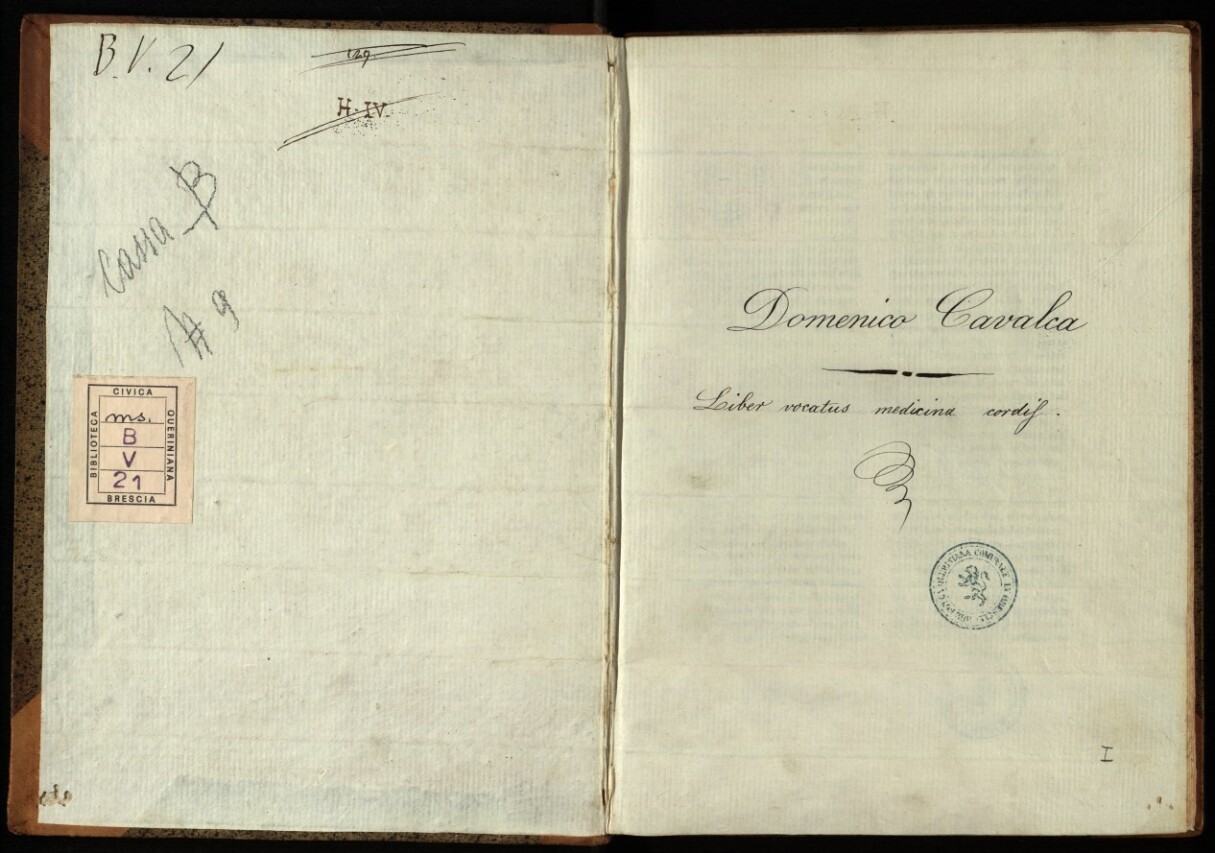 B.V. 21
H. IV.
Cassa B
9
BIBLIOTECA
CIVICA
QUERINIANA
ms.
B
V
21
BRESCIA
Domenico Cavalca
Liber vocatus medicina cordis.
QUIRINIANA COMUNALE
I